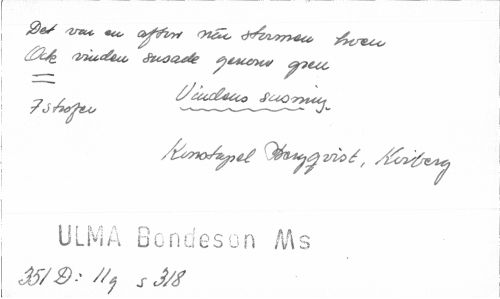 Det var en afton när stormen hven
Och vinden susade genom gren
7 strofer
Vindens susning.
Konstapel Bergqvist, Kviberg
ULMA Bondeson Ms
351 D: 11q s 318